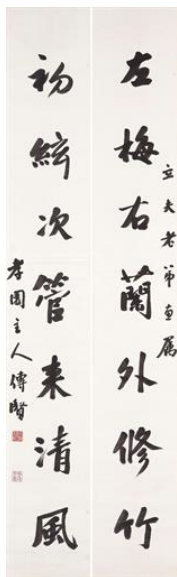 左梅右蘭外修竹
立夫老弟惠屬
初絃次管来清風
孝園主人傳賢